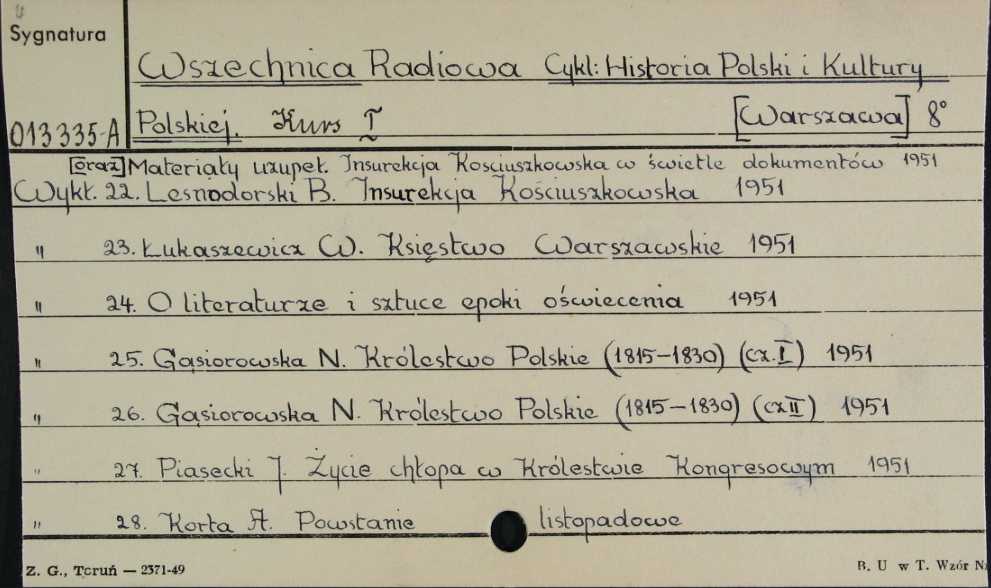 Sygnatura
Wszechnica Radiowa Cykl: Historia Polski i Kultury
013335-A Polskiej. Kurs I [Warszawa] 8°
[oraz] Materiały uzupeł. Insurekcja Kościuszkowska w świetle dokumentów 1951
Wykł. 22. Lesnodorski B. Insurekcja Kościuszkowska 1951
" 23. Łukaszewicz W. Księstwo Warszawskie 1951
" 24. O literaturze i sztuce epoki oświecenia 1951
" 25. Gąsiorowska N. Królestwo Polskie (1815-1830) (cz. I) 1951
" 26. Gąsiorowska N. Królestwo Polskie (1815-1830) (cz II) 1951
" 27. Piasecki J. Życie chłopa w Królestwie Kongresowym 1951
" 28. Korta A. Powstanie listopadowe
Z. G., Toruń — 2371-49 B. U w T. Wzór Nr